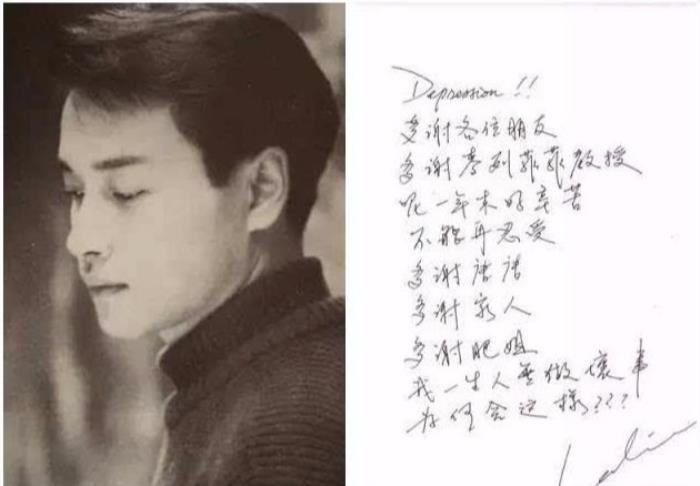 Depression!!
多谢各位朋友
多谢李列菲菲教授
呢一年来好辛苦
不能再忍受
多谢唐唐
多谢家人
多谢肥姐
我一生人無做壞事
为何会这樣???
Leslie